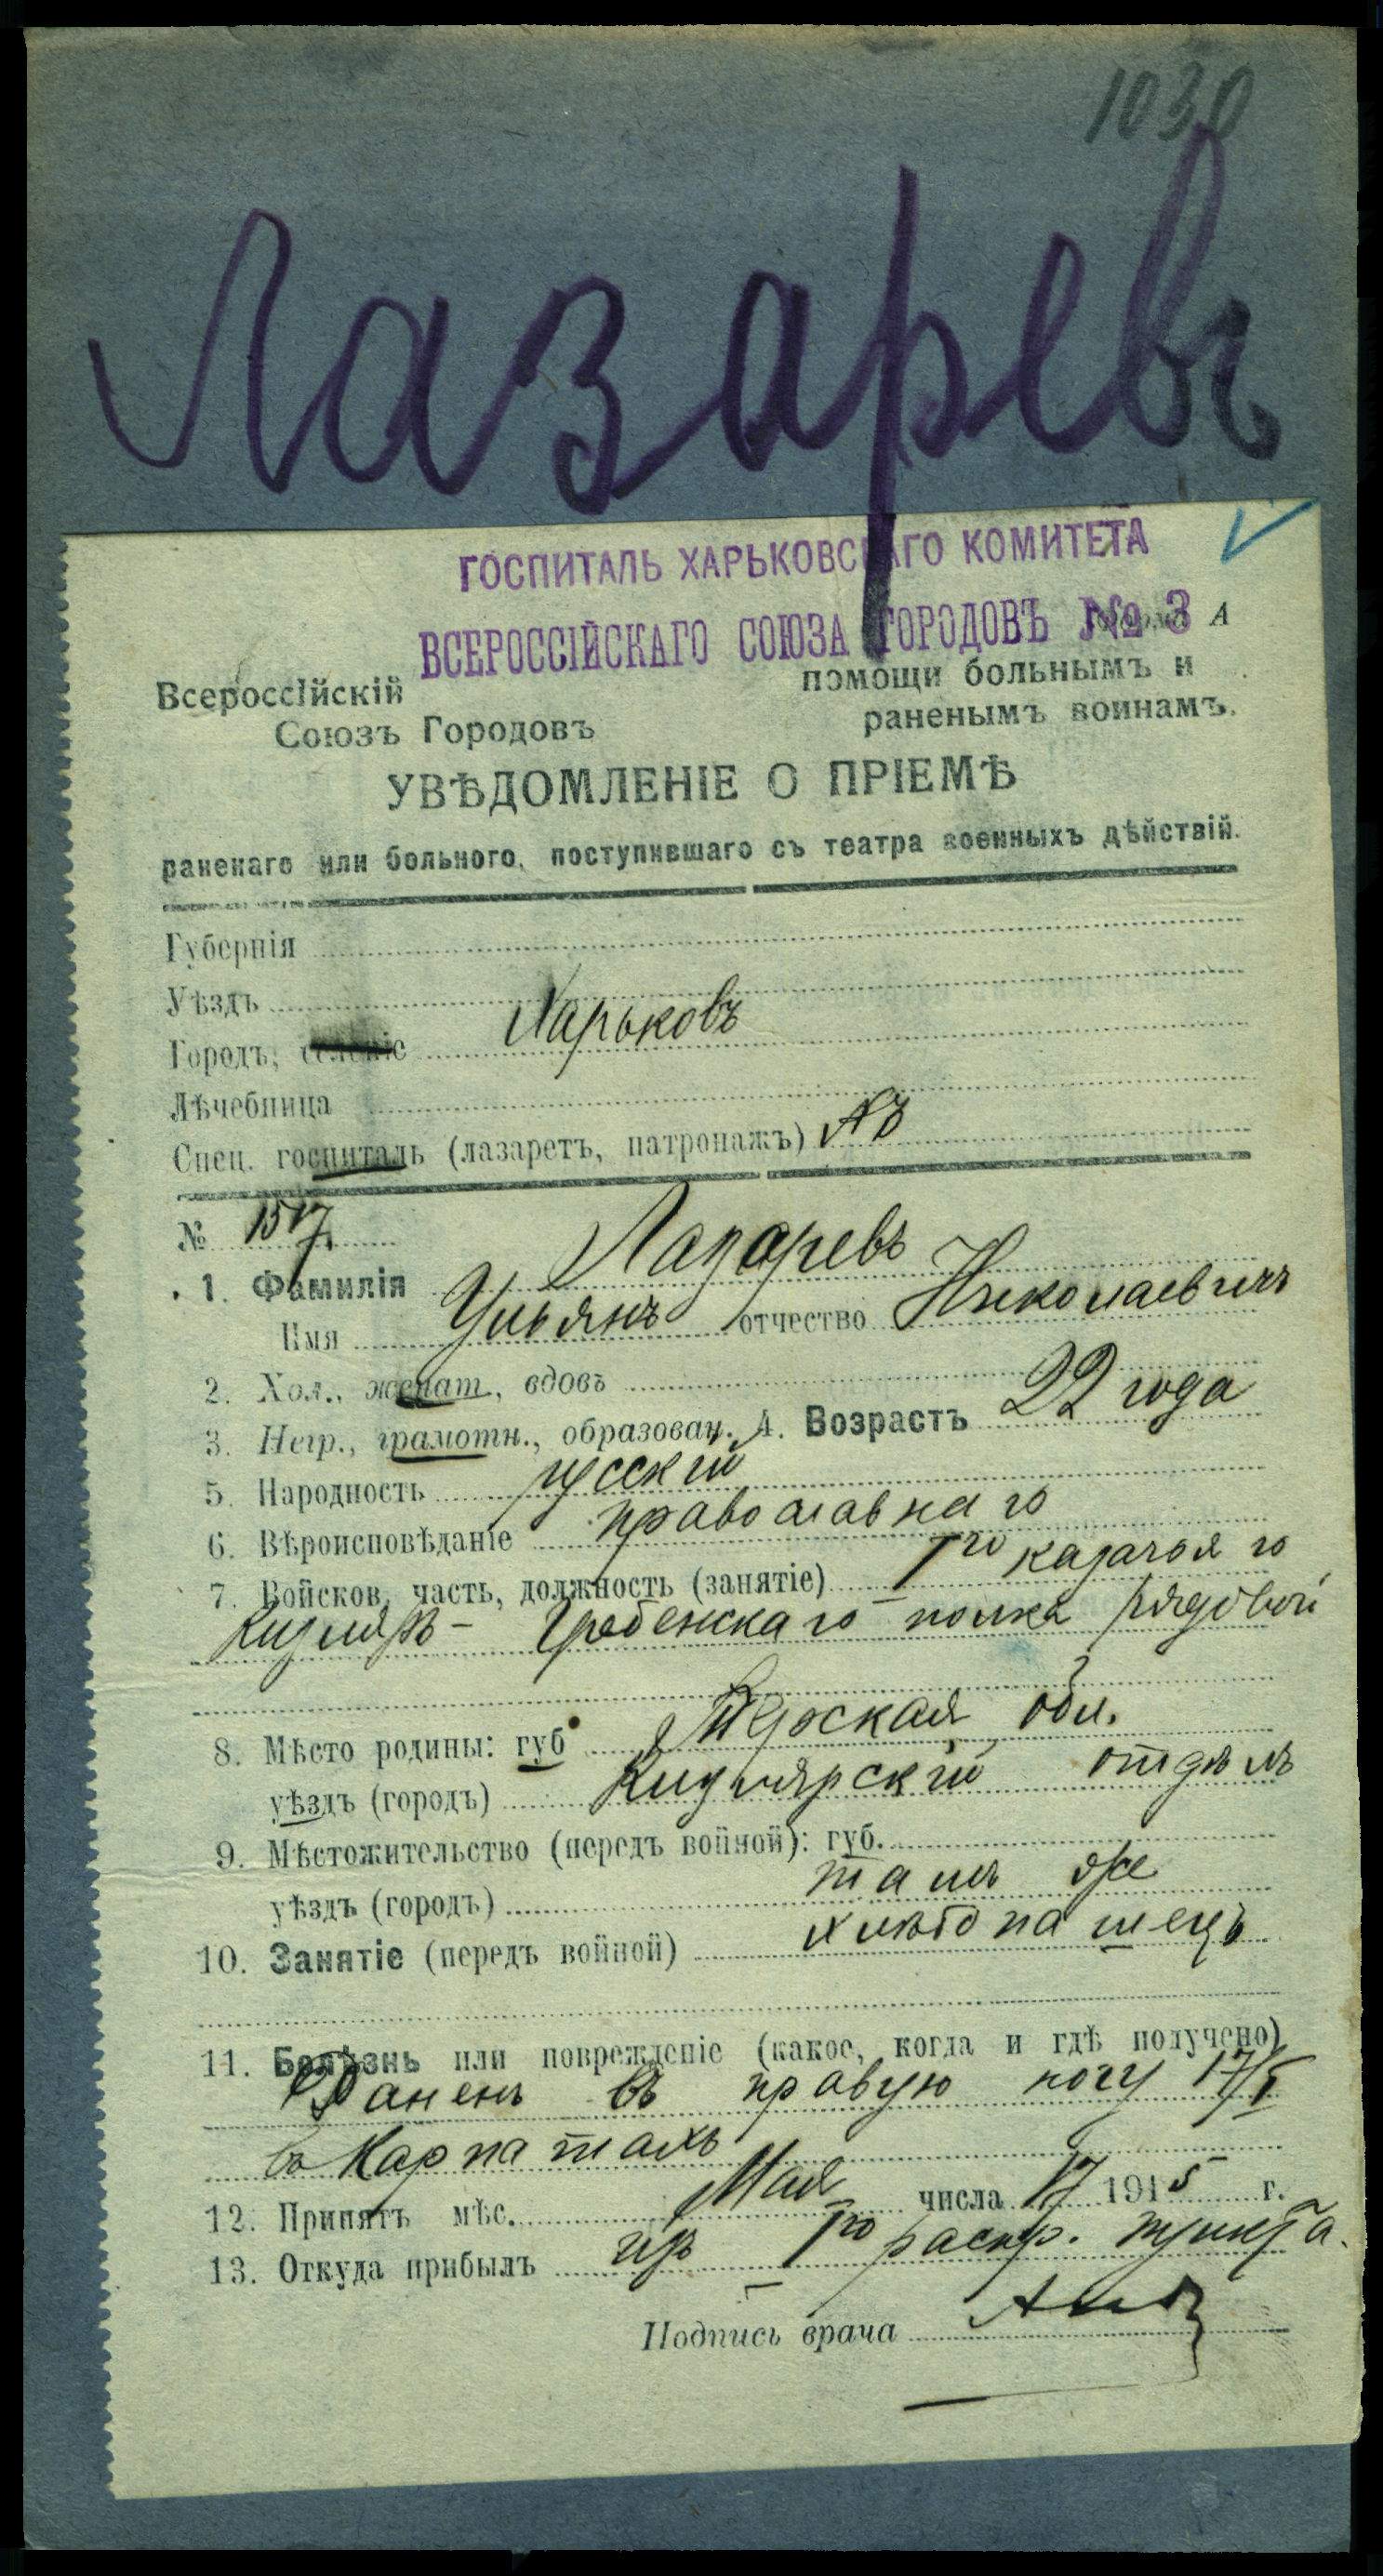 1030
Лазаревъ
ГОСПИТАЛЬ ХАРЬКОВСКАГО КОМИТЕТА
ВСЕРОССІЙСКАГО СОЮЗА ГОРОДОВЪ № 3
А
Всероссійскій
Союзъ Городовъ
помощи больнымъ и
раненымъ воинамъ.
УВѢДОМЛЕНІЕ О ПРІЕМѢ
раненаго или больного, поступившаго съ театра военныхъ дѣйствій.
Губернія
Уѣздъ
Городъ, селеніе Харьковъ
Лѣчебница
Спец. госпиталь (лазаретъ, патронажъ)
№ 1517
1. Фамилія Лазаревъ
Имя Ульянъ отчество Николаевичъ
2. Хол., женат., вдовъ
3. Негр., грамотн., образован. 4. Возрастъ 22 года
5. Народность русскій
6. Вѣроисповѣданіе православнаго
7. Войсков. часть, должность (занятіе) 1го казачьяго
Кизляръ- Гребенскаго полка рядовой
8. Мѣсто родины: губ. Терская обл.
уѣздъ (городъ) Кизлярскій отдѣлъ
9. Мѣстожительство (передъ войной): губ.
уѣздъ (городъ) тамъ же
10. Занятіе (передъ войной) хлѣбопашецъ
11. Болѣзнь или поврежденіе (какое, когда и гдѣ получено)
Раненъ въ правую ногу 17/I
въ Карпатахъ
12. Принятъ мѣс. Мая числа 17 1915 г.
13. Откуда прибылъ изъ 1го распр. пункта.
Подпись врача